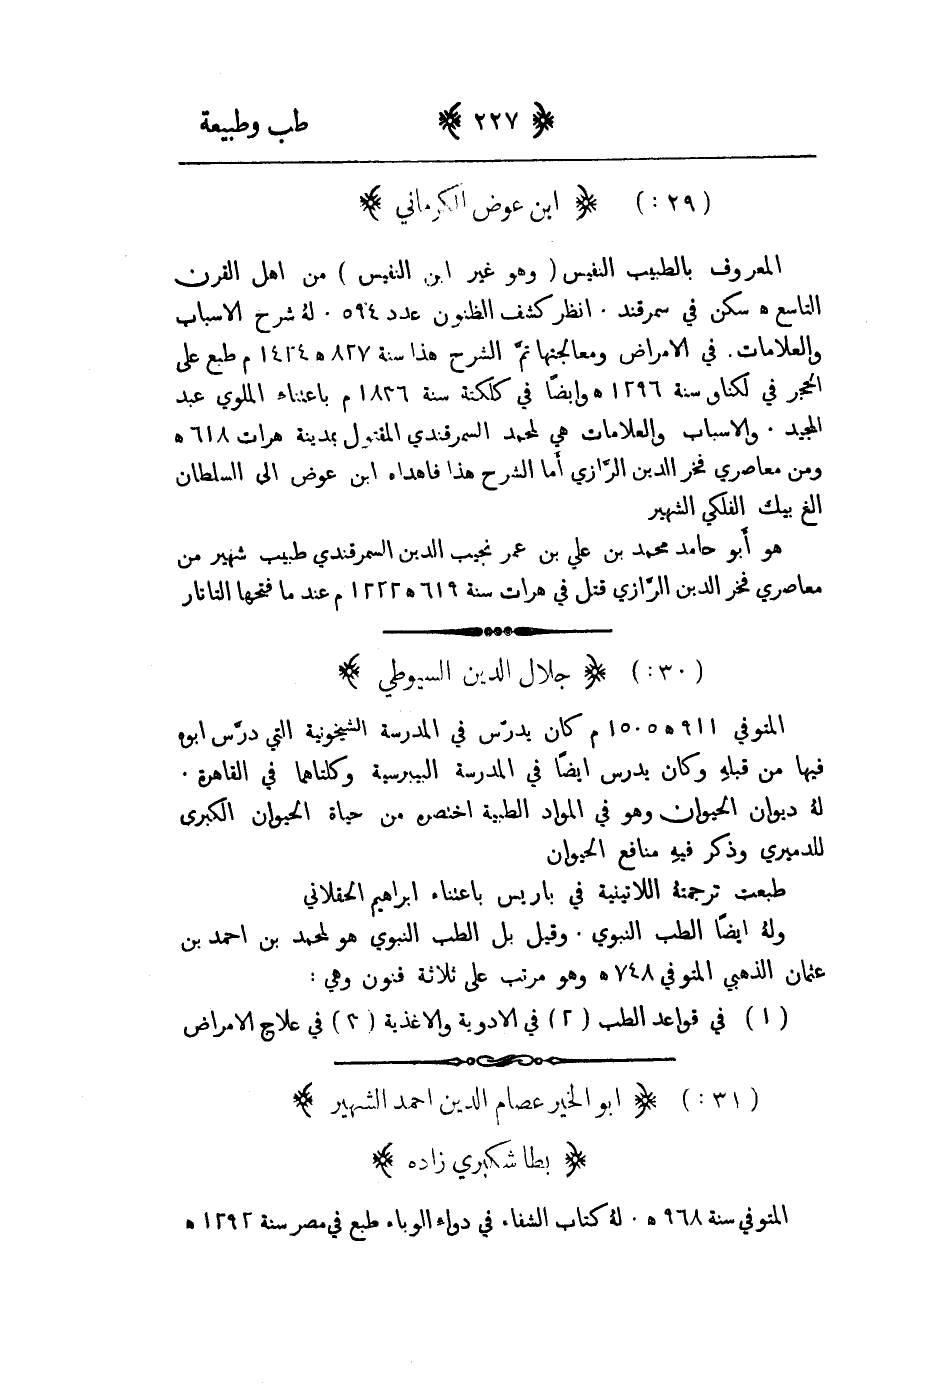 طب وطبيعة ﴿ ٢٢٧ ﴾
( ٢٩ : ) ﴿ ابن عوض الكرماني ﴾
المعروف بالطبيب النفيس ( وهو غير ابن النفيس ) من اهل القرن
التاسع ه سكن في سمرقند ٠ انظر كشف الظنون عدد ٥٩٤ ٠ لهُ شرح الاسباب
والعلامات. في الامراض ومعالجتها تمَّ الشرح هذا سنة ٨٢٧ ه ١٤٢٤ م طبع على
الحجر في لكناو سنة ١٢٩٦ ه وايضًا في كلكتة سنة ١٨٣٦ م باعتناء الملوي عبد
المجيد ٠ والاسباب والعلامات هي لمحمد السمرقندي المقتول بمدينة هرات ٦١٨ ه
ومن معاصري فخر الدين الرّازي أما الشرح هذا فاهداه ابن عوض الى السلطان
الغ بيك الفلكي الشهير
هو أبو حامد محمد بن علي بن عمر نجيب الدين السمرقندي طبيب شهير من
معاصري فخر الدين الرّازي قتل في هرات سنة ٦١٩ ه ١٢٢٢ م عند ما فتحها التاتار
( ٣٠ : ) ﴿ جلال الدين السيوطي ﴾
المتوفي ٩١١ ه ١٥٠٥ م كان يدرّس في المدرسة الشيخونية التي درّس ابوه
فيها من قبلهِ وكان يدرس ايضًا في المدرسة البيبرسية وكلتاهما في القاهرة ٠
لهُ ديوان الحيوان وهو في المواد الطبية اختصره من حياة الحيوان الكبرى
للدميري وذكر فيهِ منافع الحيوان
طبعت ترجمتهُ اللاتينية في باريس باعتناء ابراهيم الحقلاني
ولهُ ايضًا الطب النبوي ٠ وقيل بل الطب النبوي هو لمحمد بن احمد بن
عثمان الذهبي المتوفي ٧٤٨ ه وهو مرتب على ثلاثة فنون وهي :
( ١ ) في قواعد الطب ( ٢ ) في الادوية والاغذية ( ٣ ) في علاج الامراض
( ٣١ : ) ﴿ ابو الخير عصام الدين احمد الشهير ﴾
﴿ بطاشكبري زاده ﴾
المتوفي سنة ٩٦٨ ه ٠ لهُ كتاب الشفاء في دواء الوباء طبع في مصر سنة ١٢٩٢ ه